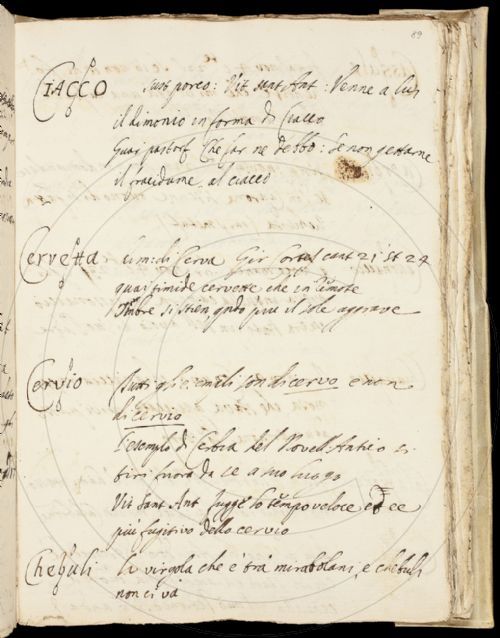 89
CIACCO sust porco: Vit. sant Ant: Venne a lui
il dimonio in forma di Ciacco
Guar pastorf Che far ne debbo: se non gettarne
il fracidume al ciacco
Cervetta dim: di Cerva Gir Cortes cant 21 st 24
quai timide cervette che in rimote
Ombre si stien, qndo piu il sole aggrava
Cervio Tutti gl'es.emili son di cervo e non
di cervio
L'esemplo di Cerbia del Novell Antico si
tiri fuora da se a suo luogo
Vit Sant Ant fugge lo tempo veloce ed ee
più fugitivo dello cervio
Chebuli La virgola che è tra mirabolani, e chebuli
non ci va